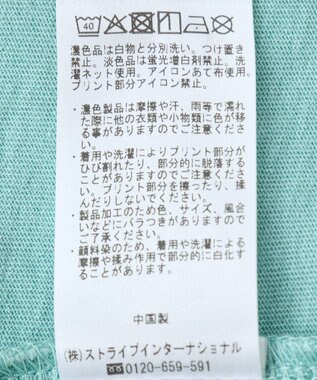 40
濃色品は白物と分別洗い。つけ置き
禁止。淡色品は蛍光増白剤禁止。洗
濯ネット使用。アイロンあて布使用。
プリント部分アイロン禁止。
・濃色製品は摩擦や汗、雨等で濡れ
た際に他の衣類や小物類に色が移
る事がありますのでご注意くださ
い。
・着用や洗濯によりプリント部分が
ひび割れたり、部分的に脱落する
ことがありますのでご注意くださ
い。プリント部分を擦ったり、揉
んだりしないでください。
・製品加工のため色、サイズ、風合
いなどにバラつきがありますので
ご了承ください。
・顔料染のため、着用や洗濯による
摩擦や揉み作用で部分的に白化す
ることがあります。
中国製
(株)ストライプインターナショナル
0120-659-591